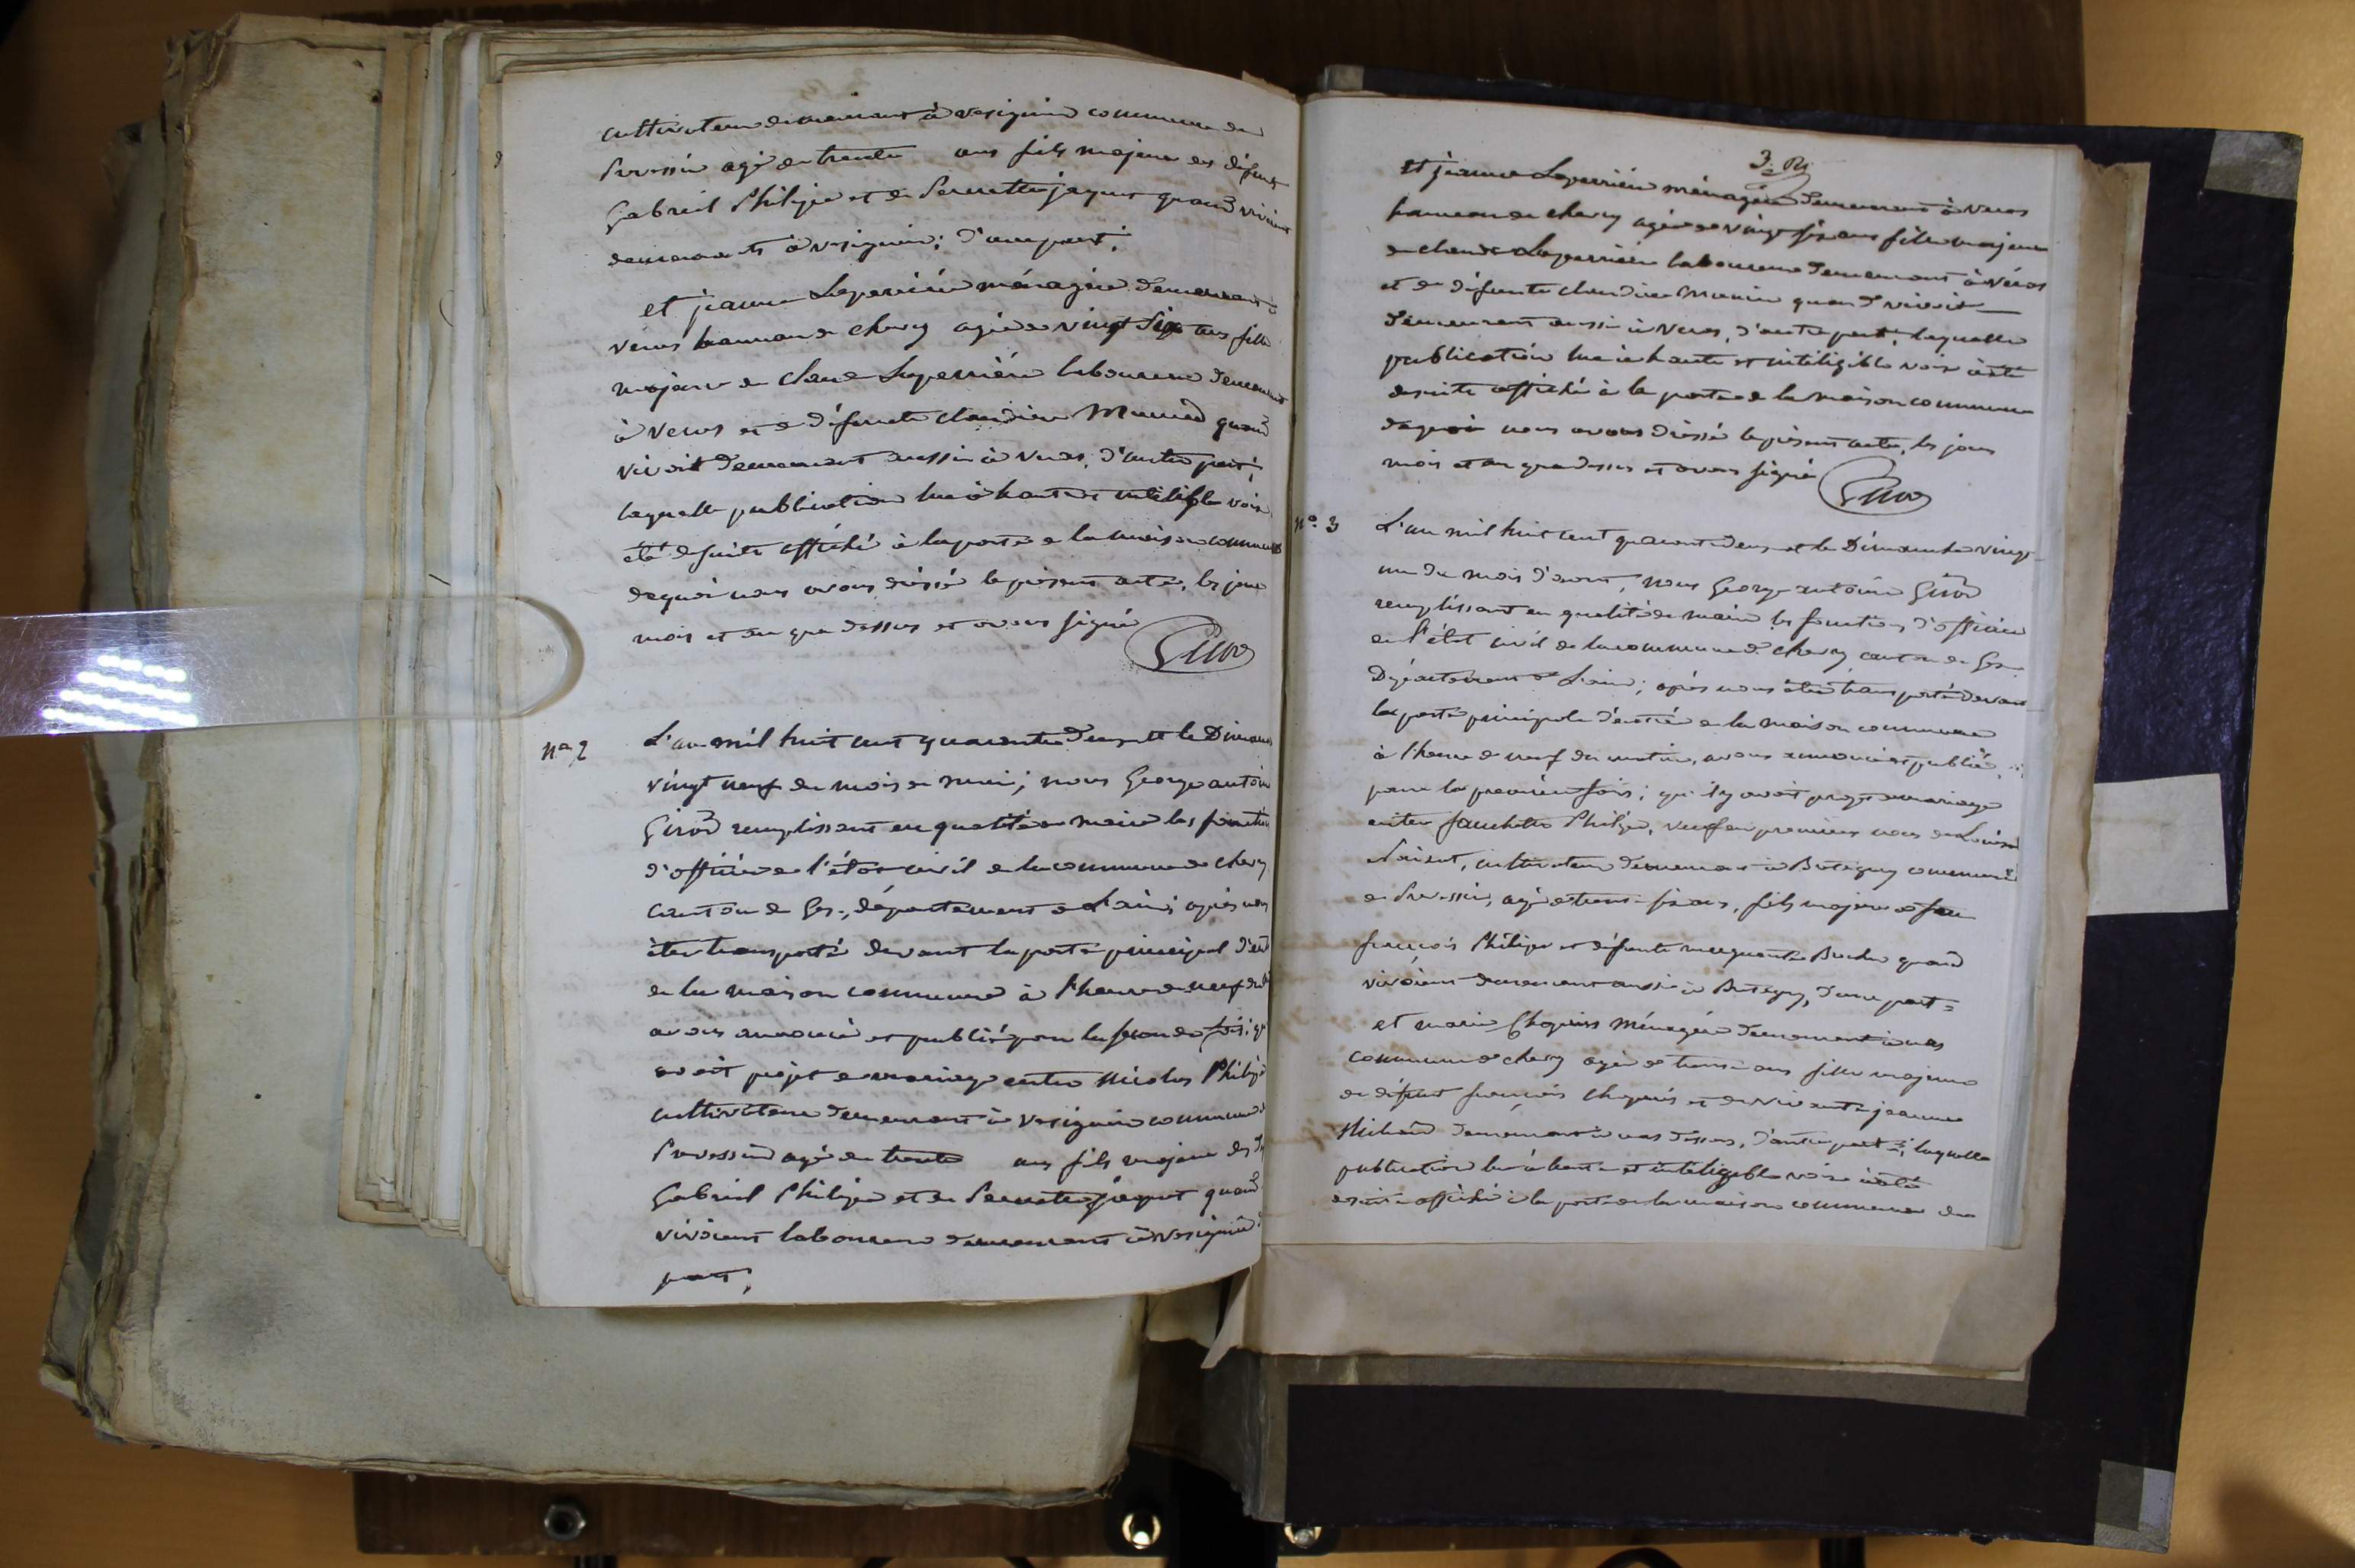 cultivateur demeurant à vesegnin commune de
Prevessin agé de trente ans fils majeur des défunts
Gabriel Philipe et de Pernette jaquet quand vivoient
demeurants à vesegnin; d'une part;
et jeanne Laperrière ménagère demeurant à
veros hameau de chevry agée de vingt six ans fille
majeure de Claude Laperrière laboureur demeurant
à Veros et de défunte claudine quand
vivoit demeurant aussi à Veros, d'autre part;
laquelle publication lue à haute et intelisible voix
été de suite affiché à la porte de la maison commune
de quoi nous avons dréssé le présent acte, les jour
mois et an que dessus et avons signé
Girod
No. 2
L'an mil huit cent quarante deux et le Dimanche
vingt neuf du mois de mai; nous George antoine
Girod remplissant en qualité de maire les fonctions
d'officier de l'état civil de la commune de chevry
canton de Gex, département de L'ain; après nous
être transporté devant la porte principal d'ent
de la maison commune à l'heure de neuf du
avons annoncé et publié pour la seconde fois; qu
avoit projet de mariage entre Nicolas Philipe
cultivateur demeurant à vesegnin commune d
Prevessin agé de trente ans fils majeur des d
Gabriel Philipe et de Pernette jaquet quand
vivoient laboureur demeurant à vesegnin d
part;
3. R.
et jeanne Laperrière ménagère demeurant à Veros
hameau de chevry agée de vingt six ans fille majeure
de claude Laperrière laboureur demeurant à Véros
et de défunte claudine quand vivoit
demeurant aussi à Veros, d'autre part; laquelle
publication lue à haute et inteligible voix à été
desuite affiché à la porte de la maison commune
de quoi nous avons dréssé le présent acte, les jour
mois et an que dessus et avons signé
Girod
No. 3
L'an mil huit cent quarante deux et le Dimanche vingt
un du mois d'aout, nous George antoine Girod
remplissant en qualité de maire les fonctions d'officier
de l'état civil de la commune de chevry canton de Gex
Département de L'ain; après nous être transporté devant
la porte principale d'entrée de la maison commune
à l'heure de neuf du matin, avons annoncé et publié
pour la première fois; qu'il y avoit projet de mariage
entre Philipe, veuf en premiers noces de Louise
cultivateur demeurant à Bretigny commune
de Prevessin, agé de trente six ans, fils majeur de feu
françois Philipe et défunte marguerite quand
vivoient demeurant aussi à Bretigny, d'une part;
et marie Chapuis ménagère demeurant à nas
commune de chevry agée de trente ans fille majeure
de défunt françois Chapuis et de vivante jeanne
demeurant à nas dessus, d'autre part; laquelle
publication lue à haute et inteligible voix à été
desuite affiché à la porte de la maison commune de